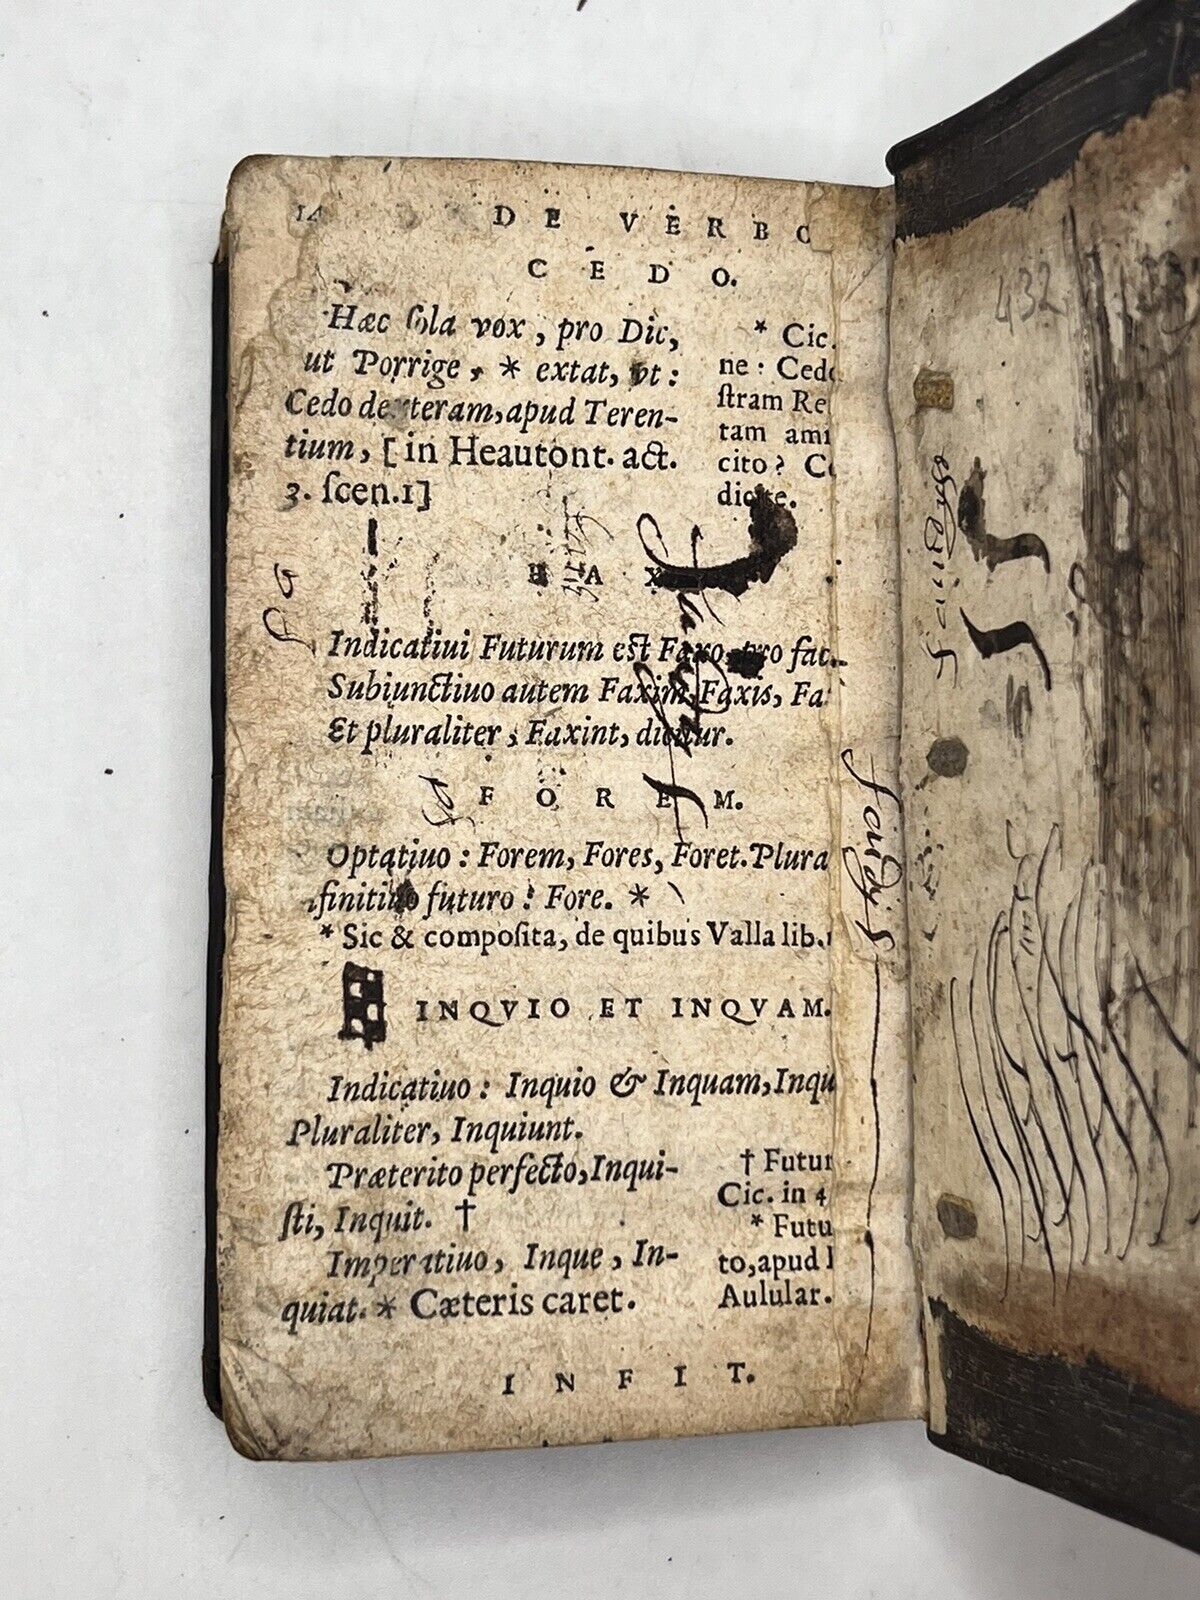 14 DE VERBO
CEDO.
Hæc ſola vox, pro Dic,
ut Porrige, * extat, vt:
Cedo dexteram, apud Teren-
tium, [in Heautont. act.
3. ſcen.1]
* Cic.
ne: Cedo
ſtram Re
tam ami
cito? Ce
dicite.
FAXO
Indicatiui Futurum est Faxo, pro fac
Subiunctiuo autem Faxim, Faxis, Fa
Et pluraliter, Faxint, dicitur.
FOREM.
Optatiuo: Forem, Fores, Foret. Plura
finitiuo futuro: Fore. *
* Sic & compoſita, de quibus Valla lib.
INQVIO ET INQVAM.
Indicatiuo: Inquio & Inquam, Inqu
Pluraliter, Inquiunt.
Præterito perfecto, Inqui-
ſti, Inquit. †
Imperatiuo, Inque, In-
quiat. * Cæteris caret.
† Futur
Cic. in 4
* Futu
to, apud
Aulular.
INFIT.
432